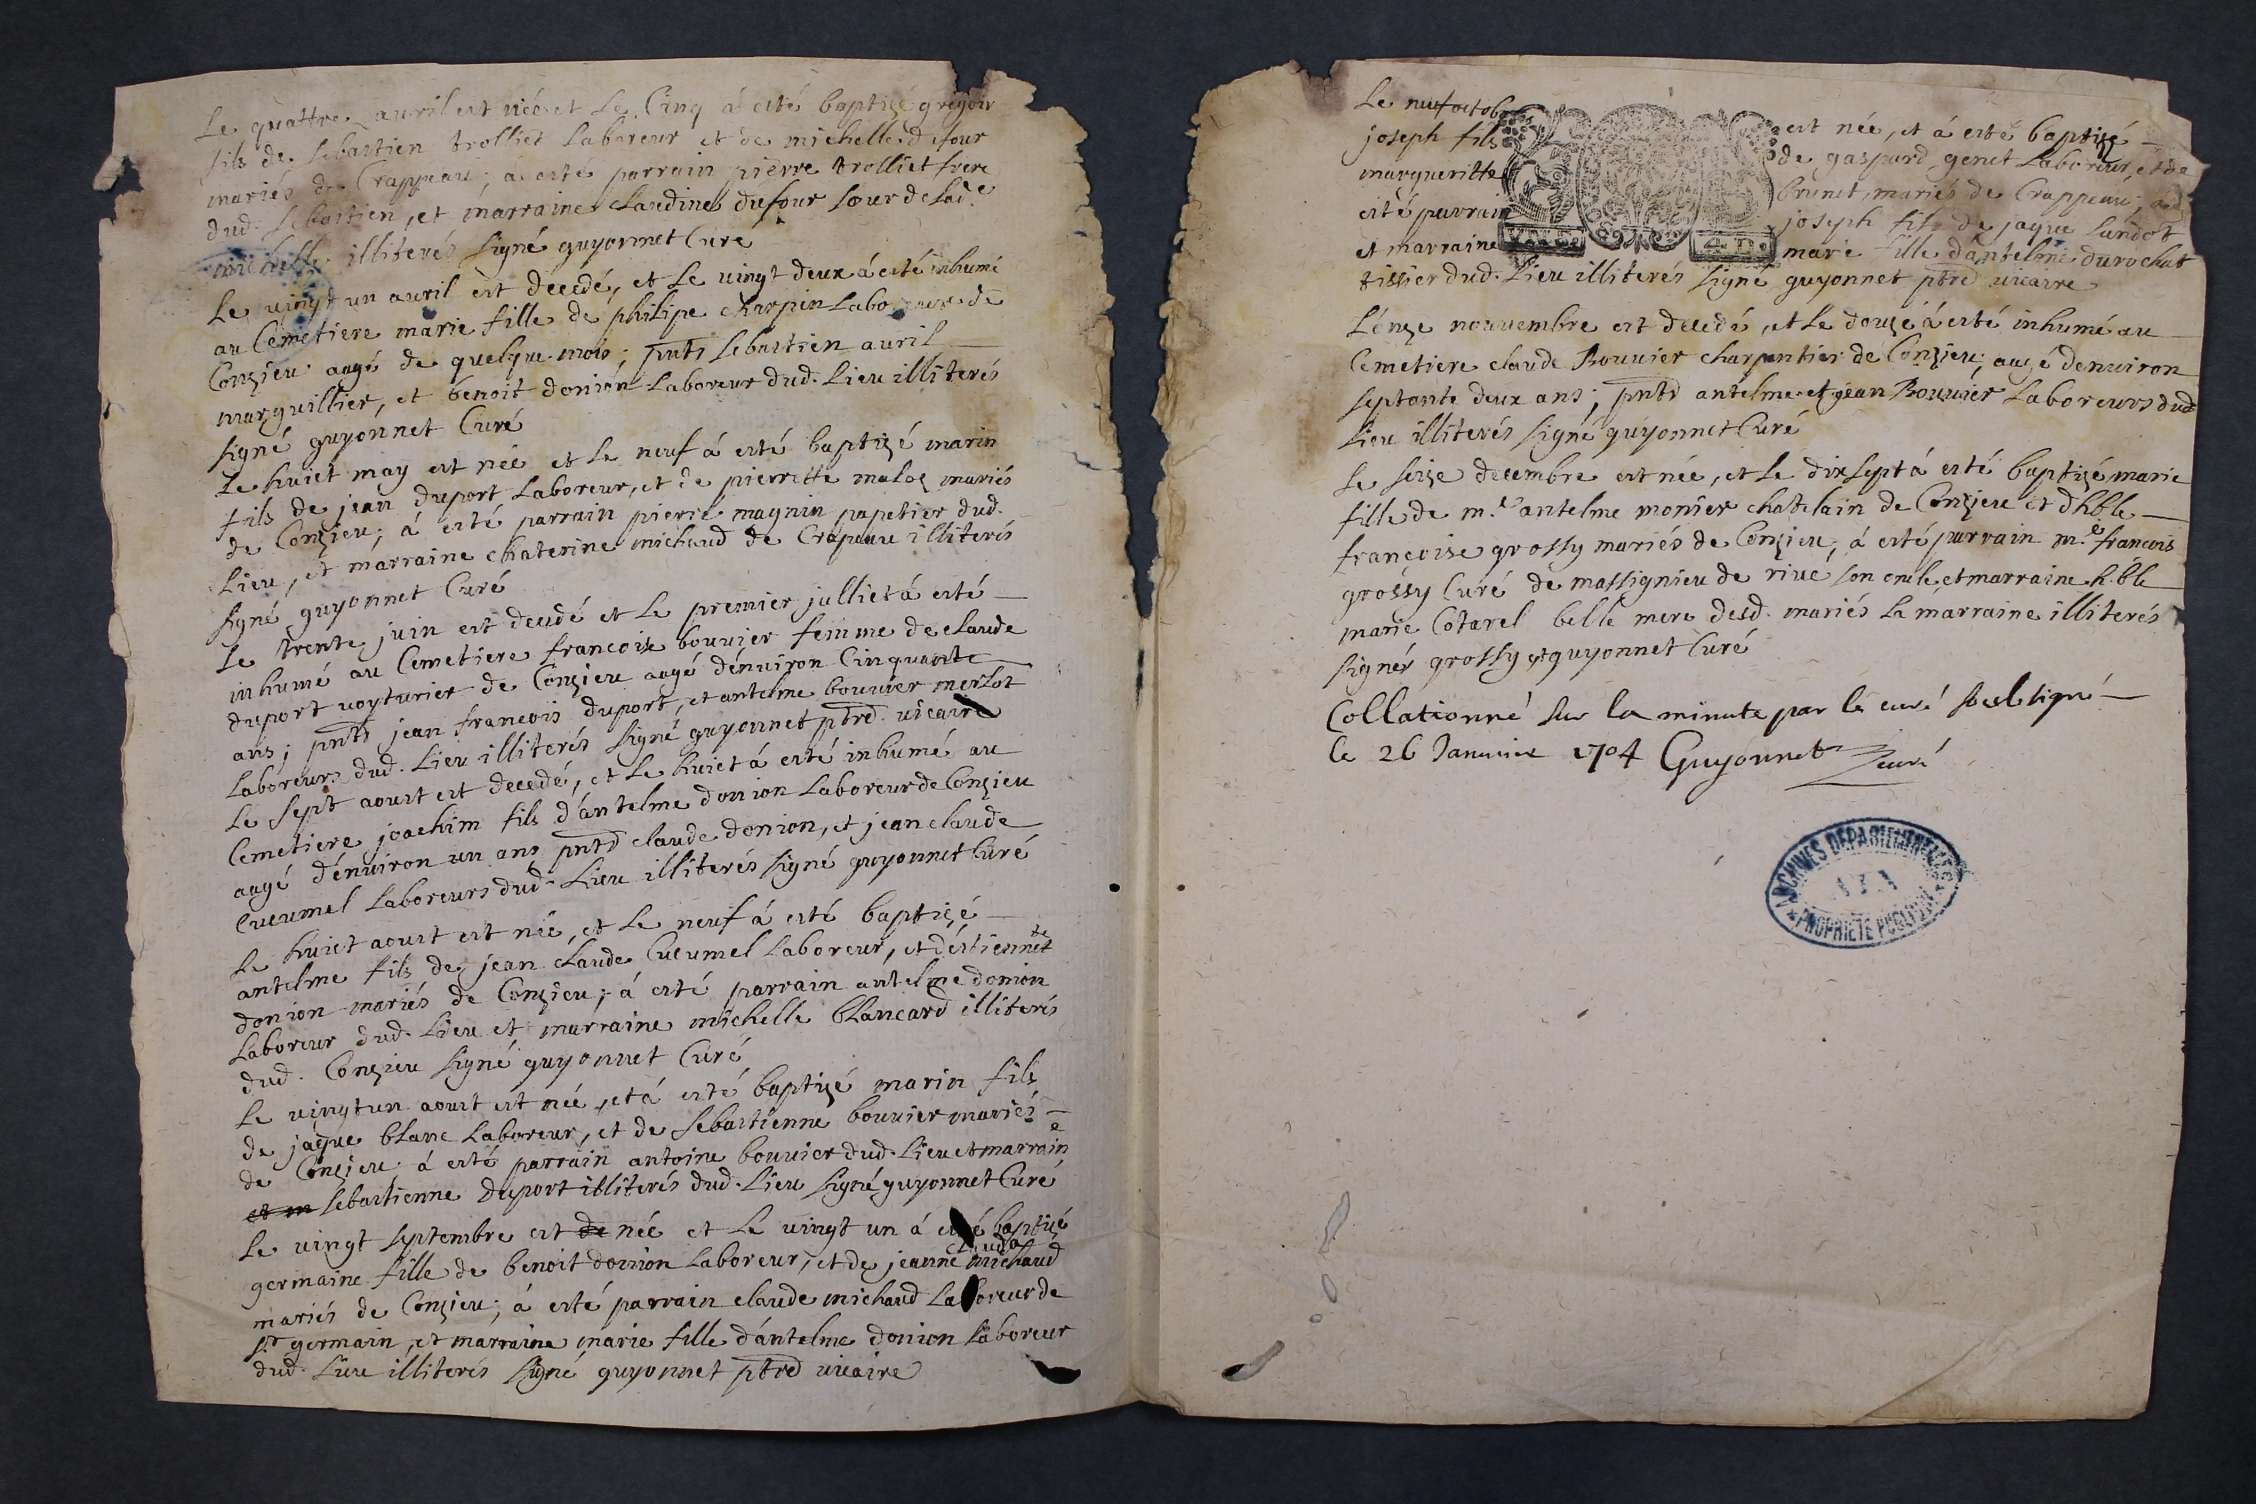 Le quattre avril est née et Le Cinq á esté baptizé gregoir
fils de sebastien trolliet Laboreur et de michelle dufour
mariés de Crappeau; á esté parrain pierre trolliet frere
dud. sebastien, et marraine claudine dufour sour de Lad.e
michelle illiterés signé guyonnet Curé
Le vingt un avril est decedé, et Le vingt deux á esté inhumé
au Cemetiere marie fille de philipe charpin Laboreur de
Conzieu augé de quelque mois; pnts sebastien avril
marguillier, et benoit donion Laboreur dud. Lieu illiterés
signé guyonnet Curé
Le huict may est née et Le neuf á esté baptizé marin
fils de jean duport Laboreur, et de pierrette maloz mariés
de Conzieu; á esté parrain pierre magnin papetier dud.
Lieu, et marraine chaterine michaud de Crapeau illiterés
signé guyonnet Curé
Le trente juin est decedé et Le premier julliet á esté
inhumé au Cemetiere francoise bouvier femme de claude
duport voyturier de Conzieu augé d'enuiron Cinquante
ans; pnts jean francois duport, et antelme bouvier merlot
Laboreurs dud. Lieu illiterés signé guyonnet ptre vicaire
Le sept aoust est decedé, et Le huict á esté inhumé au
Cemetiere joachim fils d'antelme donion Laboreur de Conzieu
augé d'enuiron un ans pnts claude donion, et jean claude
Cucumel Laboreurs dud. Lieu illiterés signé guyonnet Curé
Le huict aoust est née, et Le neuf á esté baptizé
antelme fils de jean claude Cucumel Laboreur, et d'estiennette
donion mariés de Conzieu; á esté parrain antelme donion
Laboreur dud. Lieu et marraine michelle blancard illiterés
dud. Conzieu signé guyonnet Curé
Le vingt un aoust est née, et á esté baptizé marin fils
de jaque blanc Laboreur, et de sebastienne bouvier mariés
de Conzieu á esté parrain antoine bouvier dud. Lieu et marraine
et m sebastienne duport illiterés dud. Lieu signé guyonnet Curé
Le vingt septembre est de née et Le vingt un á esté baptizé
germaine fille de benoit donion Laboreur, et de jeanne claude michaud
mariés de Conzieu; á esté parrain claude michaud Laboreur de
st germain, et marraine marie fille d'antelme donion Laboreur
dud. Lieu illiterés signé guyonnet ptre vicaire
Le neuf octobre est née, et á esté baptizé
joseph fils de gaspard genet Laboreur, et de
margueritte brunet, mariés de Crappeau; á
esté parrain joseph fils de jaque
et marraine marie fille d'antelme durochat
tissier dud. Lieu illiterés signé guyonnet ptre vicaire
L'enze nouvembre est decedé, et Le douzé á esté inhumé au
Cemetiere claude Bouvier charpentier de Conzieu; augé d'enuiron
septante deux ans; pnts antelme et jean Bouvier Laboreurs dud.
Lieu illiterés signé guyonnet Curé
Le seize decembre est née, et Le dix sept á esté baptizé marie
fille de m.e antelme monier chatelain de Conzieu et d'hble
françoise grossy mariés de Conzieu, á esté parrain m.e francois
grossy Curé de massignieu de rivé son oncle, et marraine h.ble
marie Cotarel belle mere desd. mariés La marraine illiterés
signés grossy et guyonnet Curé
Collationné sur la minute par le curé soubsigné
le 26 Januier 1704 Guyonnet curé
ARCHIVES DEPARTEMENTALES
AIN
PROPRIETE PUBLIQUE